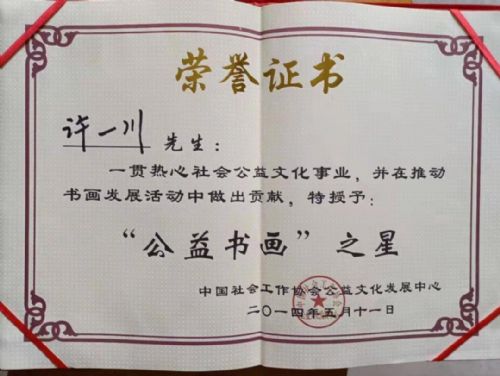 荣誉证书
许一川 先生：
一贯热心社会公益文化事业，并在推动
书画发展活动中做出贡献，特授予：
“公益书画”之星
中国社会工作协会公益文化发展中心
二〇一四年五月十一日